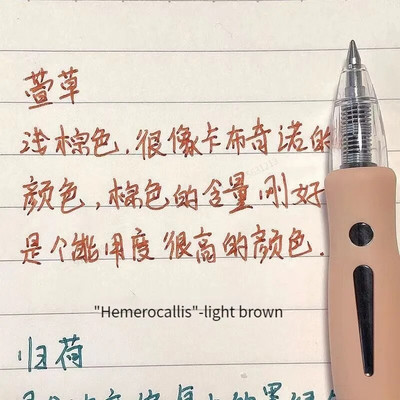 萱草
浅棕色.很像卡布奇诺的
颜色,棕色的含量刚好
是个能用度很高的颜色.
"Hemerocallis"-light brown
归荷